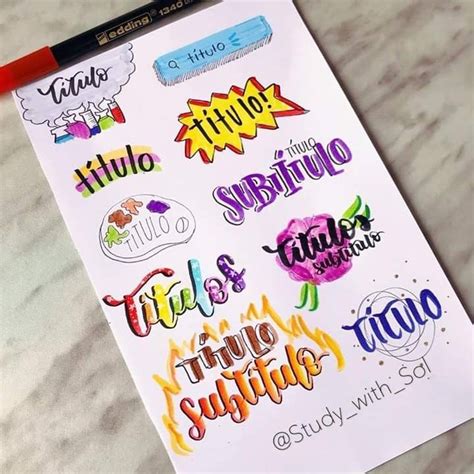 edding 1340
título
título
título!
título
TÍTULO
SUBTÍTULO
TÍTULO
títulos
subtítulo
títulos
TÍTULO
TÍTULO
subtítulo
@Study_with_Sal